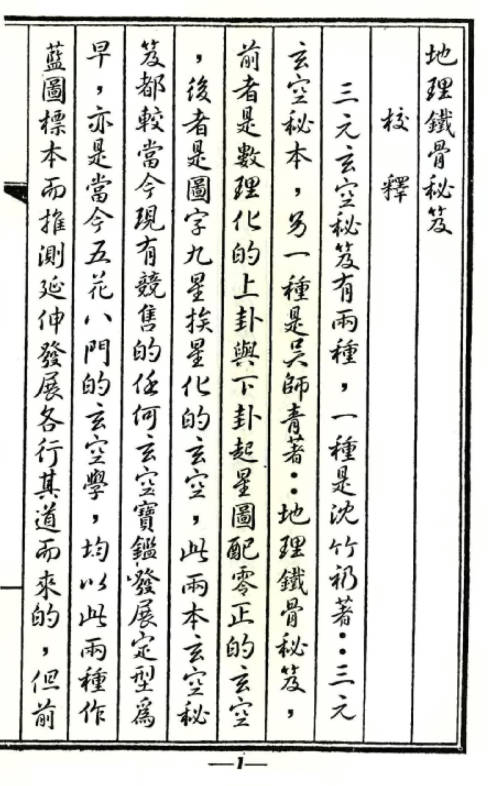 地理鐵骨秘笈
校釋
三元玄空秘笈有兩種，一種是沈竹礽著：三元
玄空秘本，另一種是吴師青著：地理鐵骨秘笈，
前者是數理化的上卦與下卦起星圖配零正的玄空
，後者是圖字九星挨星化的玄空，此兩本玄空秘
笈都較當今現有競售的任何玄空寶鑑發展定型為
早，亦是當今五花八門的玄空學，均以此兩種作
藍圖標本而推測延伸發展各行其道而來的，但前
—1—